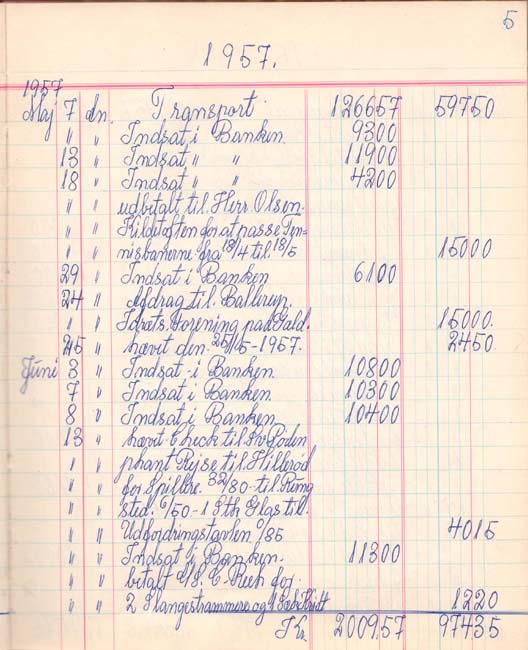 5
1957.
1957
Maj 7 dn. Transport 126657 59750
" " Indsat i Banken. 9300
13 " Indsat " " 11900
18 " Indsat " " 4200
" " udbetalt til Herr Olsen.
" " Kildetoften for at passe Ten-
" " nisbanerne fra 18/4 til 18/5 15000
29 " Indsat i Banken 6100
24 " Afdrag til Ballerup.
" " Idræts. Forening paa Gæld. 15000.
25 " hævet den. 25/5-1957. 2450.
Juni 3 " Indsat i Banken. 10800
7 " Indsat i Banken. 10300
8 " Indsat i Banken 10400
13 " hævet Check til
" " Rejse til Hillerød
" " for Spillere. 32/80 til Ring
" " sted. 6/50 - 1 Sth Glas til.
" " Udfordringstavlen 0/85 4015
" " Indsat i Banken. 11300
" " betalt for.
" " 2 Stangestrammere og 1220
Kr. 200957 97435